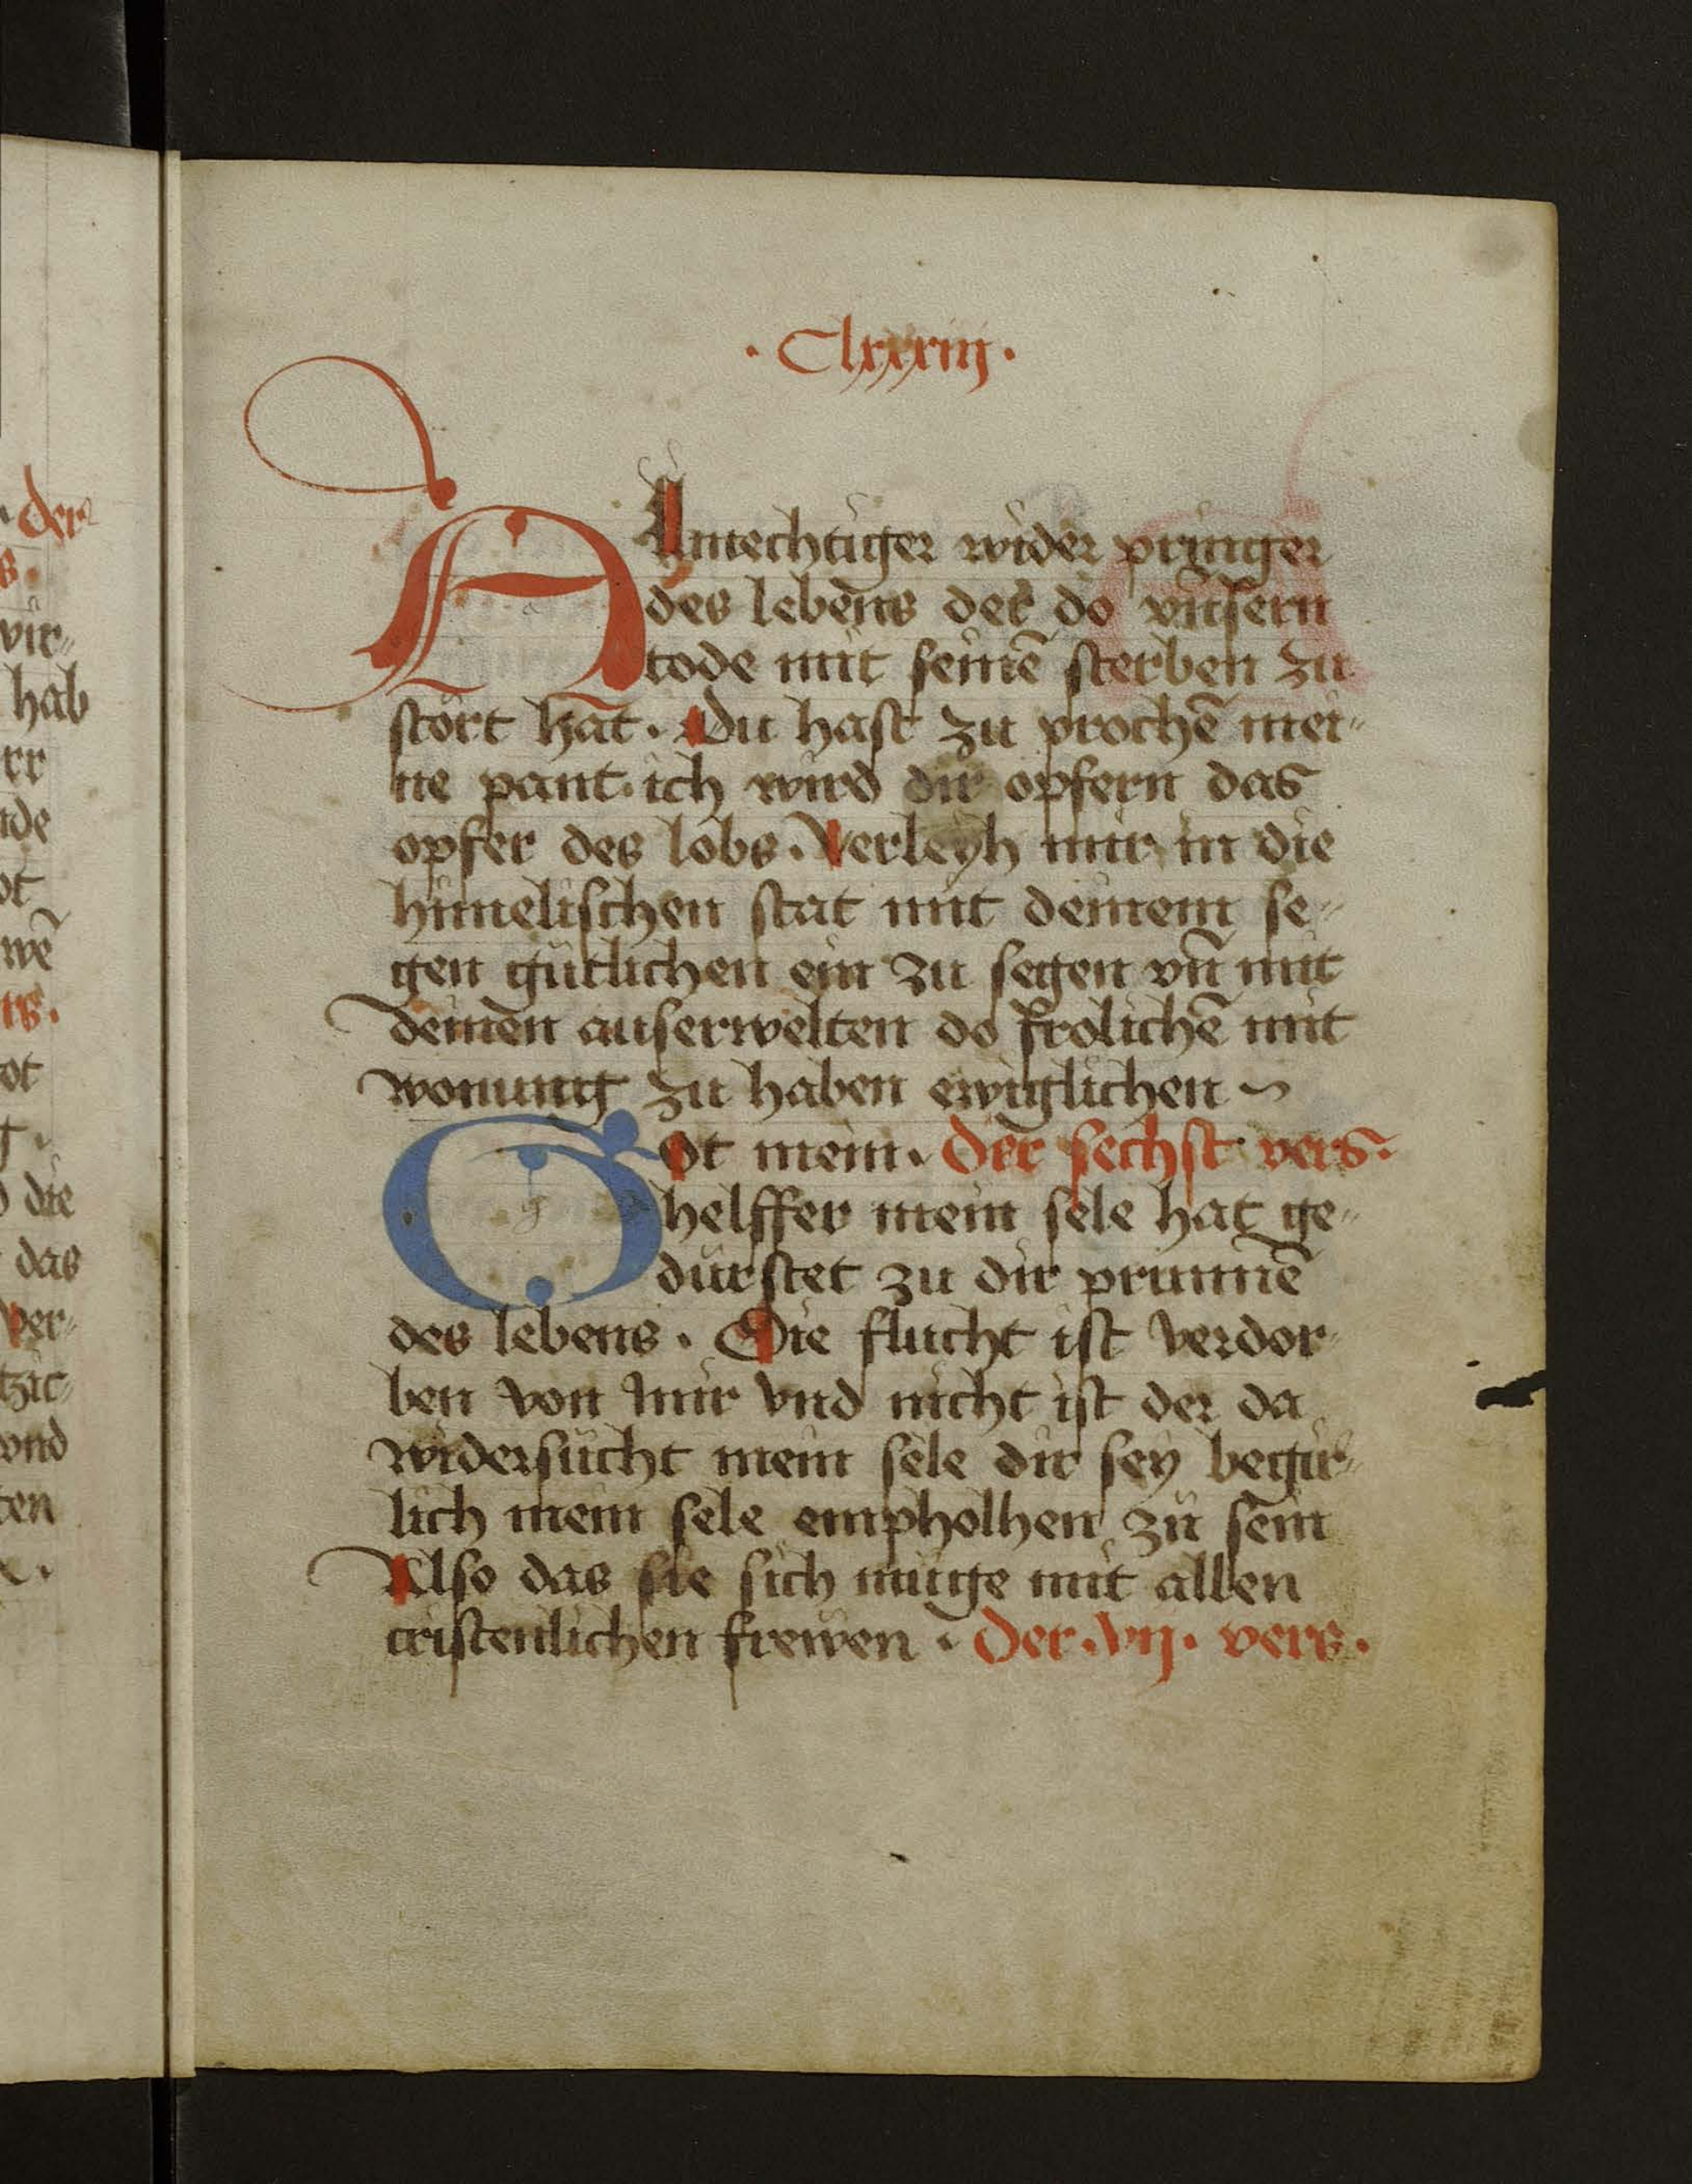 · Clxxxiij ·
Almechtiger wider pringer
des lebens der do vnsern
tode mit seinē sterben zu
stört hat · Du hast zu prochē mei-
ne pant · ich wird dir opfern das
opfer des lobs · Verleyh mir in die
himelischen stat mit deinem se-
gen gütlichen ein zu segen vn̄ mit
deinen auserwelten do frolichē mit
wonung zu haben ewiglichen ~
Got mein · Der sechst vers ·
helffer mein sele hat ge-
dürstet zu dir prunnē
des lebens · Die flucht ist verdor-
ben von mir vnd nicht ist der da
widersücht mein sele dir sey begir-
lich mein sele empholhen zü sein
Also das sie sich müge mit allen
cristenlichen frewen · Der · vij · vers ·